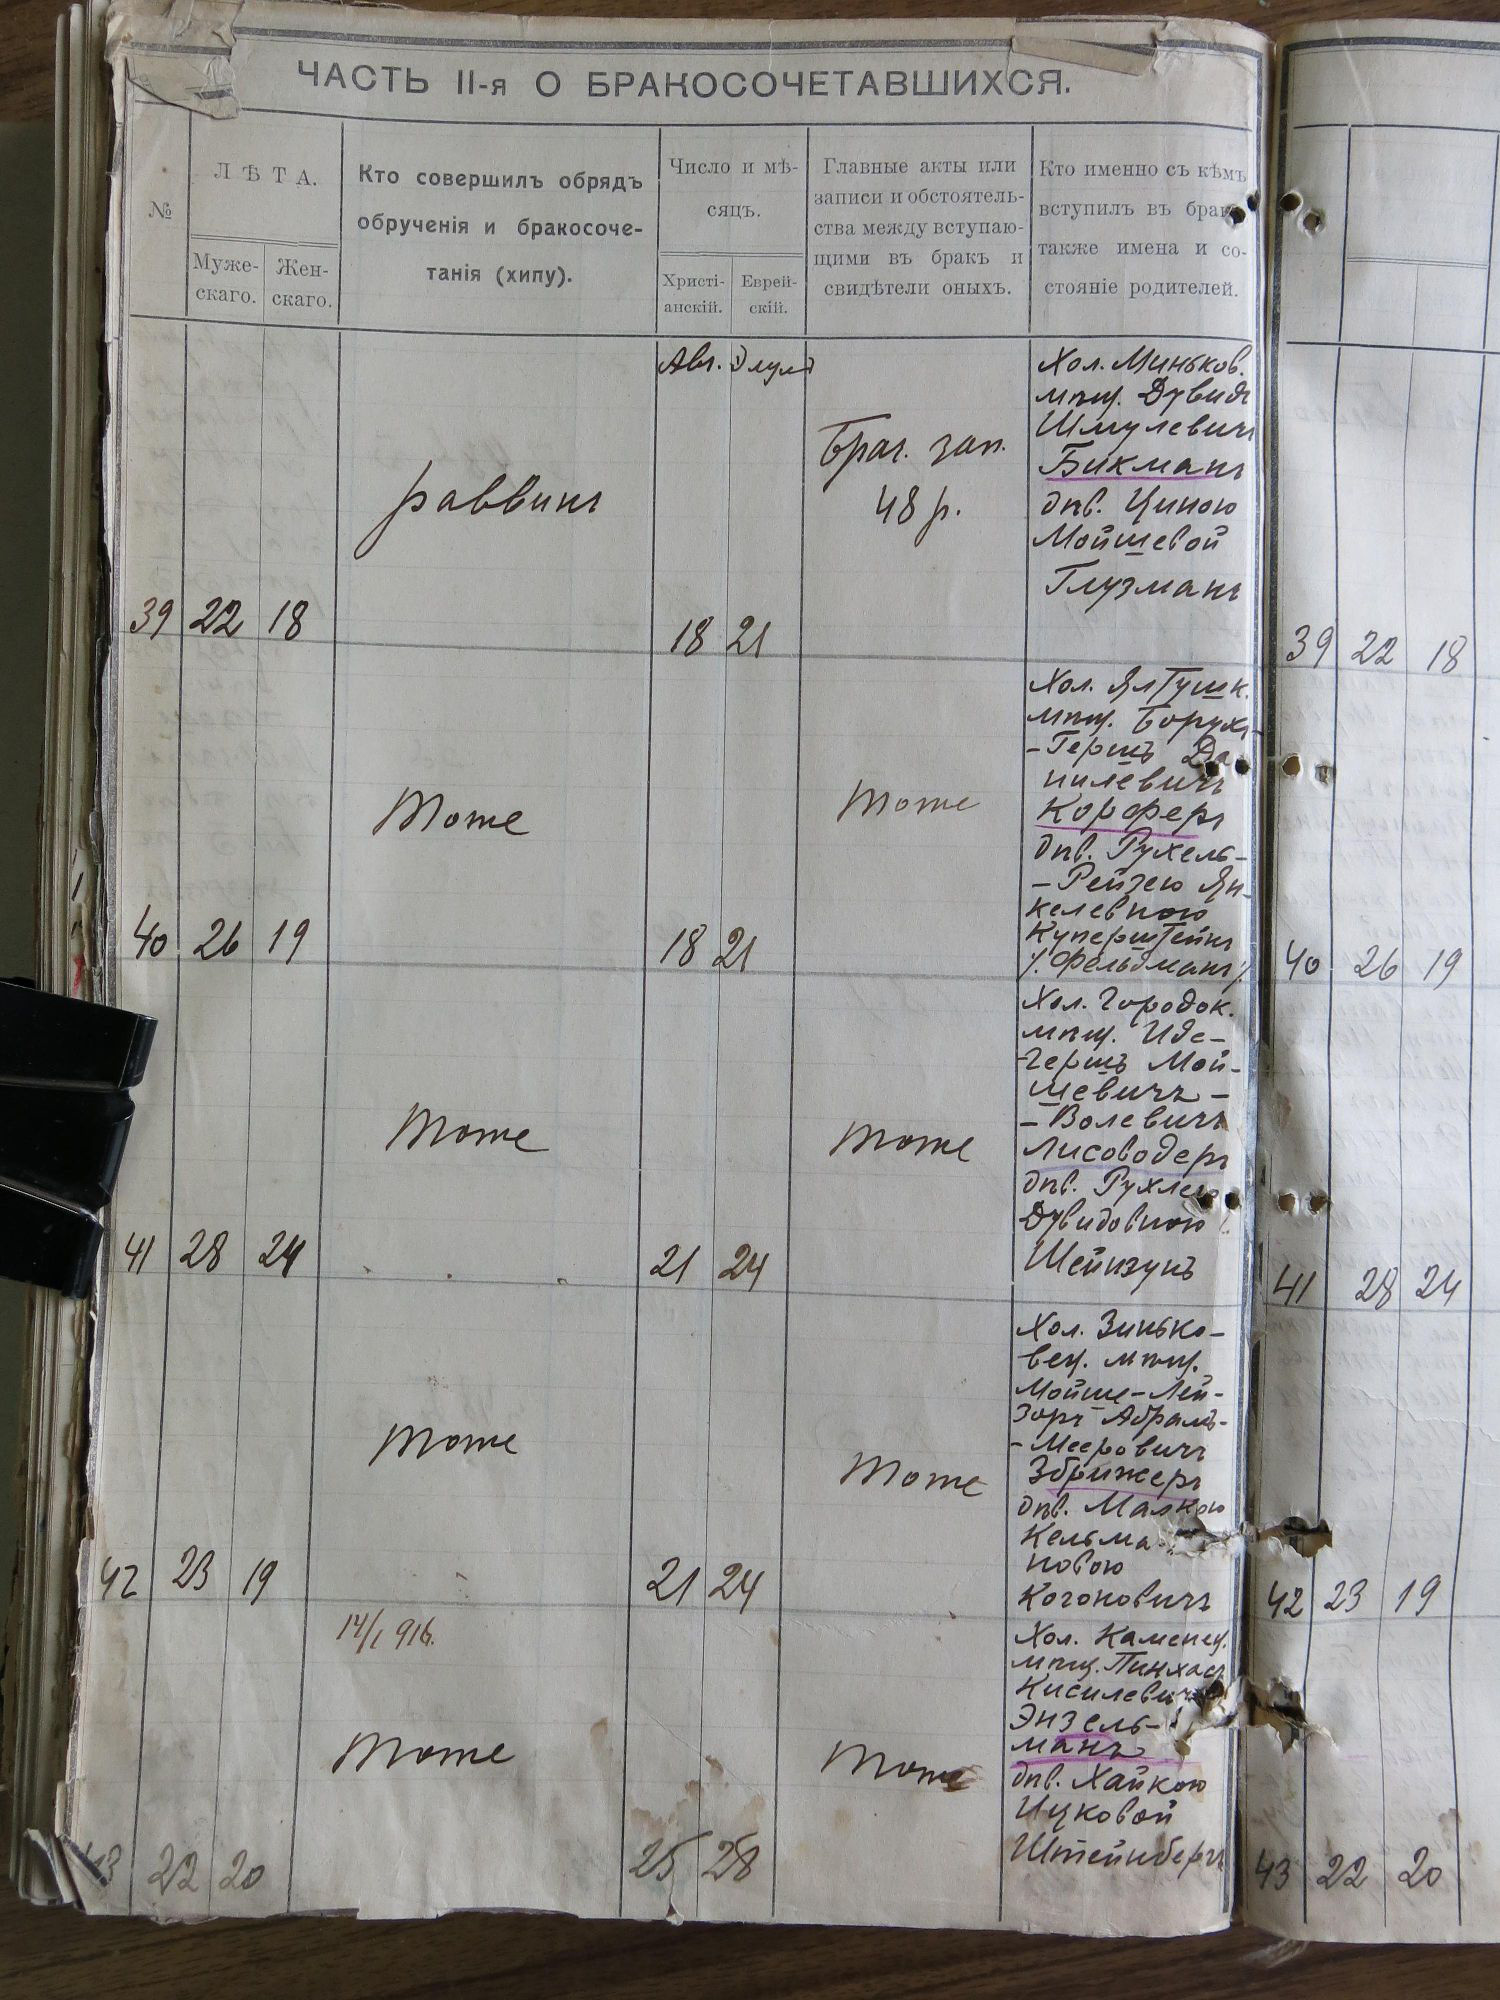 ЧАСТЬ II-я О БРАКОСОЧЕТАВШИХСЯ.
№
ЛѢТА.
Муже-
скаго.
Жен-
скаго.
Кто совершилъ обрядъ
обрученія и бракосоче-
танія (хипу).
Число и мѣ-
сяцъ.
Христі-
анскій.
Еврей-
скій.
Главные акты или
записи и обстоятель-
ства между вступаю-
щими въ бракъ и
свидѣтели оныхъ.
Кто именно съ кѣмъ
вступилъ въ бракъ
также имена и со-
стояніе родителей.
Авг. Элулъ
39 22 18
раввинъ
18 21
Брач. зап.
48 р.
Хол. Миньков.
мѣщ. Дувидъ
Шмулевичъ
Бикманъ
дѣв. Циною
Мойшевой
Глузманъ
40 26 19
тоже
18 21
тоже
Хол. Ялтушк.
мѣщ. Борухъ-
-Гершъ Да
нилевичъ
Корферъ
дѣв. Рухель-
-Рейзею Ян-
келевною
Куперштейнъ
/. Фельдманъ /.
41 28 24
тоже
21 24
тоже
Хол. Городок.
мѣщ. Иде-
-Гершъ Мой-
шевичъ-
-Волевичъ
Лисоводеръ
дѣв. Рухлею
Дувидовною
Шейнзунъ
42 23 19
тоже
21 24
тоже
Хол. Зинько-
вец. мѣщ.
Мойше-Лей-
зоръ Абрамъ-
-Мееровичъ
Збрижеръ
дѣв. Малкою
Кельма
новою
Когоновичъ
14/I 916.
43 22 20
тоже
25 28
тоже
Хол. Каменец.
мѣщ. Пинхасъ
Кисилевичъ
Энзель-
манъ
дѣв. Хайкою
Ицковой
Штейнбергъ
39 22 18
40 26 19
41 28 24
42 23 19
43 22 20